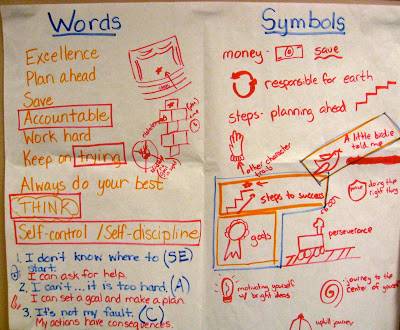 Words
Excellence
Plan ahead
Save
Accountable
Work hard
Keep on trying
Always do your best
THINK
Self-control / Self-discipline
1. I don't know where to (SE)
start.
I can ask for help.
2. I can't... it is too hard. (A)
I can set a goal and make a plan.
3. It's not my fault. (C)
My actions have consequences.
Symbols
money - save
responsible for earth
steps - planning ahead
A little birdie
told me
other character
traits
doing the
right thing
steps to success
goals
perseverance
motivating yourself
w/ bright ideas
journey to the
center of yourself
uphill journey